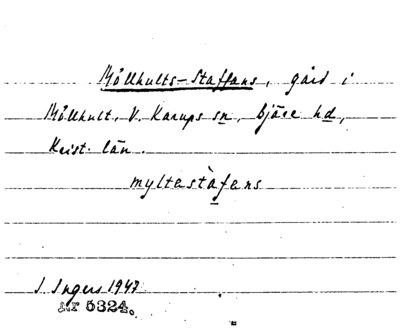 Möllhults-Staffans, gård i
Möllhult, V. Karups sn, Bjäre hd,
Krist. län.
myltestàfens
I. Ingers 1947
Nr 5324.